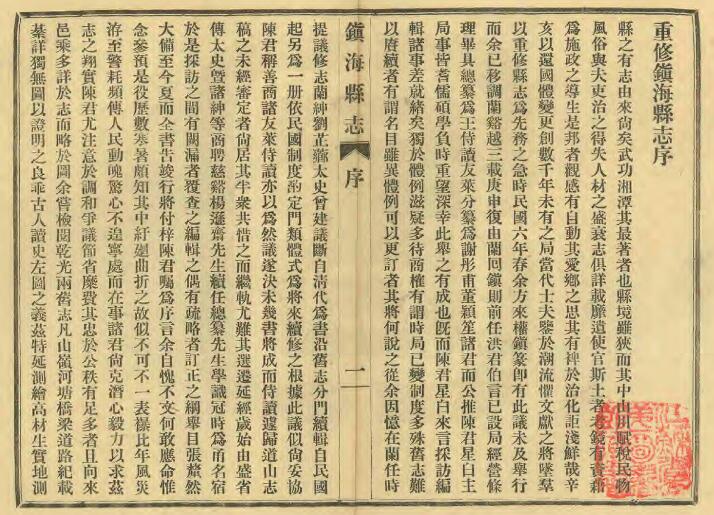 重修鎮海縣志序
縣之有志由來尙矣武功湘潭其最著者也縣境雖狹而其中山川賦稅民物
風俗與夫吏治之得失人材之盛衰志俱詳載靡遺使官斯土者鏡有資藉
爲施政之導生是邦者觀感有自動其愛鄕之思其有裨於治化詎淺鮮哉辛
亥以還國體變更創數千年未有之局當代士夫鑒於潮流懼文獻之將墜羣
以重修縣志爲先務之急時民國六年春余方來權鎭篆卽有此議未及舉行
而余已移調蘭谿越三載庚申復由蘭回鎭則前任洪君伯言已設局經營修
理畢具總纂爲王侍讀友萊分纂爲謝彤甫董穎笙諸君而公推陳君星白主
局事皆耆儒碩學負時重望深幸此舉之有成也旣而陳君星白來言採訪編
輯諸事差就緒矣獨於體例滋疑多待商榷有謂時局已變制度多殊舊志難
以賡續者有謂名目雖異體例可以更訂者其將何說之從余因憶在蘭任時
鎭海縣志
序
一
提議修志蘭紳劉芷薌太史曾建議斷自淸代爲書沿舊志分門續輯自民國
起另爲一册依民國制度酌定門類體式爲將來續修之根據此議似尙妥協
陳君稱善商諸友萊侍讀亦以爲然議遂決未幾書將成而侍讀遽歸道山志
稿之未經審定者尙居其半衆共惜之而繼軌尤難其選遷延經歲始由盛省
傳太史曁諸紳等商聘慈谿楊遜齋先生續任總纂先生學識冠時爲甬名宿
於是採訪之間有闕漏者覆查之編輯之偶有疏略者訂正之綱舉目張釐然
大備至今夏而全書吿竣行將付梓陳君囑爲序言余自愧不文何敢應命惟
念參預是役歷數寒暑頗知其中紆迴曲折之故似不可不一表襮比年風災
洊至警耗頻傳人民動魄驚心不遑寧處而在事諸君尙克潛心毅力以求茲
志之翔實陳君尤注意於調和爭議節省縻費其忠於公秩有足多者且向來
邑乘多詳於志而略於圖余嘗檢閱乾光兩舊志凡山嶺河塘橋梁道路紀載
綦詳獨無圖以證明之良乖古人讀史左圖之義茲特延測繪高材生實地測